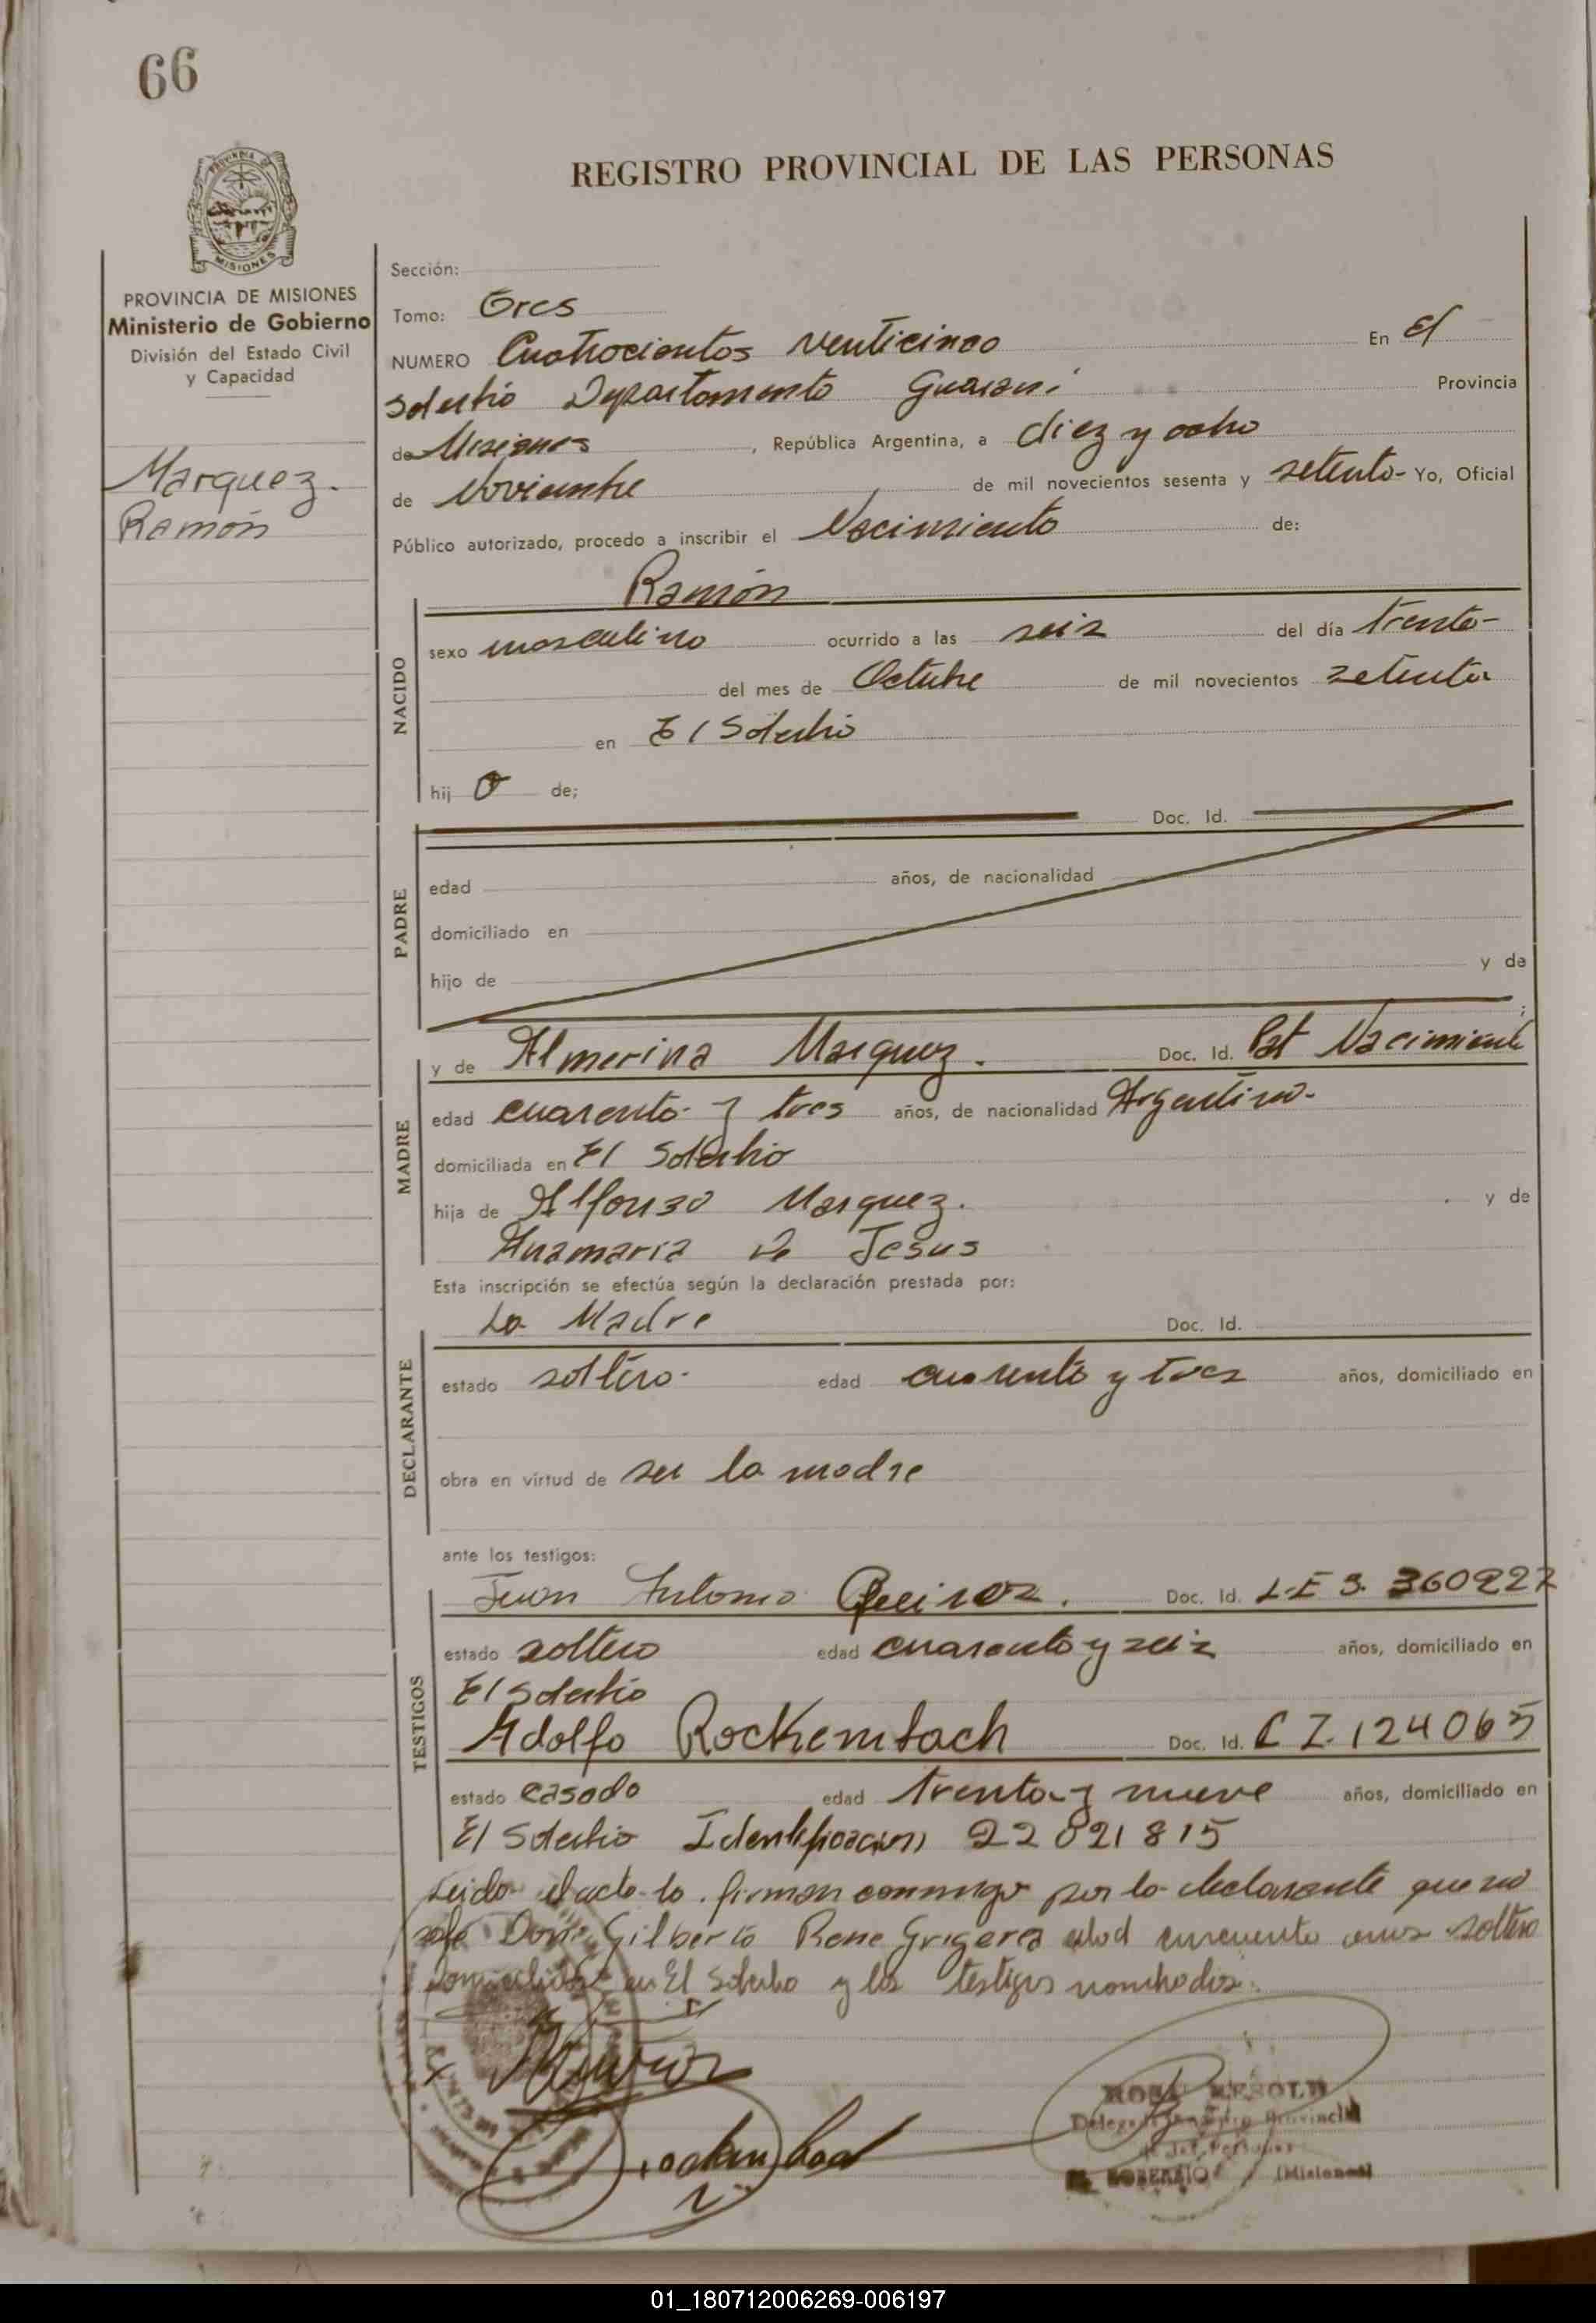 66
REGISTRO PROVINCIAL DE LAS PERSONAS
PROVINCIA DE MISIONES
MISIONES
PROVINCIA DE MISIONES
Ministerio de Gobierno
División del Estado Civil
y Capacidad
Marquez.
Ramón
Sección:
Tomo: Tres
NUMERO Cuatrocientos venticinco En El
Soberbio Departamento Guarani Provincia
de Misiones, República Argentina, a diez y ocho
de Noviembre de mil novecientos sesenta y setenta- Yo, Oficial
Público autorizado, procedo a inscribir el Nacimiento de:
NACIDO
Ramón
sexo masculino ocurrido a las seis del día trenta-
del mes de Octubre de mil novecientos setenta
en El Soberbio
hij o de;
PADRE
Doc. Id.
edad años, de nacionalidad
domiciliado en
hijo de y de
;
MADRE
y de Almerina Marquez. Doc. Id. Pat Nacimient
edad cuarenta y tres años, de nacionalidad Argentina-
domiciliada en El Soberbio
hija de Alfonso Marquez. y de
Anamaria de Jesus
Esta inscripción se efectúa según la declaración prestada por:
DECLARANTE
La Madre Doc. Id.
estado soltera- edad cuarenta y tres años, domiciliado en
obra en virtud de ser la madre
ante los testigos:
TESTIGOS
Juan Antonio Queiroz. Doc. Id. L.E 3.360227
estado soltero edad cuarenta y seis años, domiciliado en
El Soberbio
Adolfo Rockembach Doc. Id. C I. 124065
estado casado edad trenta y nueve años, domiciliado en
El Soberbio Identificacion 22821815
Leida el acta la firman conmigo por la declarante que no
sabe Don Gilberto Rene Grigera edad cincuenta anos soltero
domiciliado en El Soberbio y los testigos nombados.
Provincial
de las Personas
EL SOBERBIO (Misiones)
01_180712006269-006197